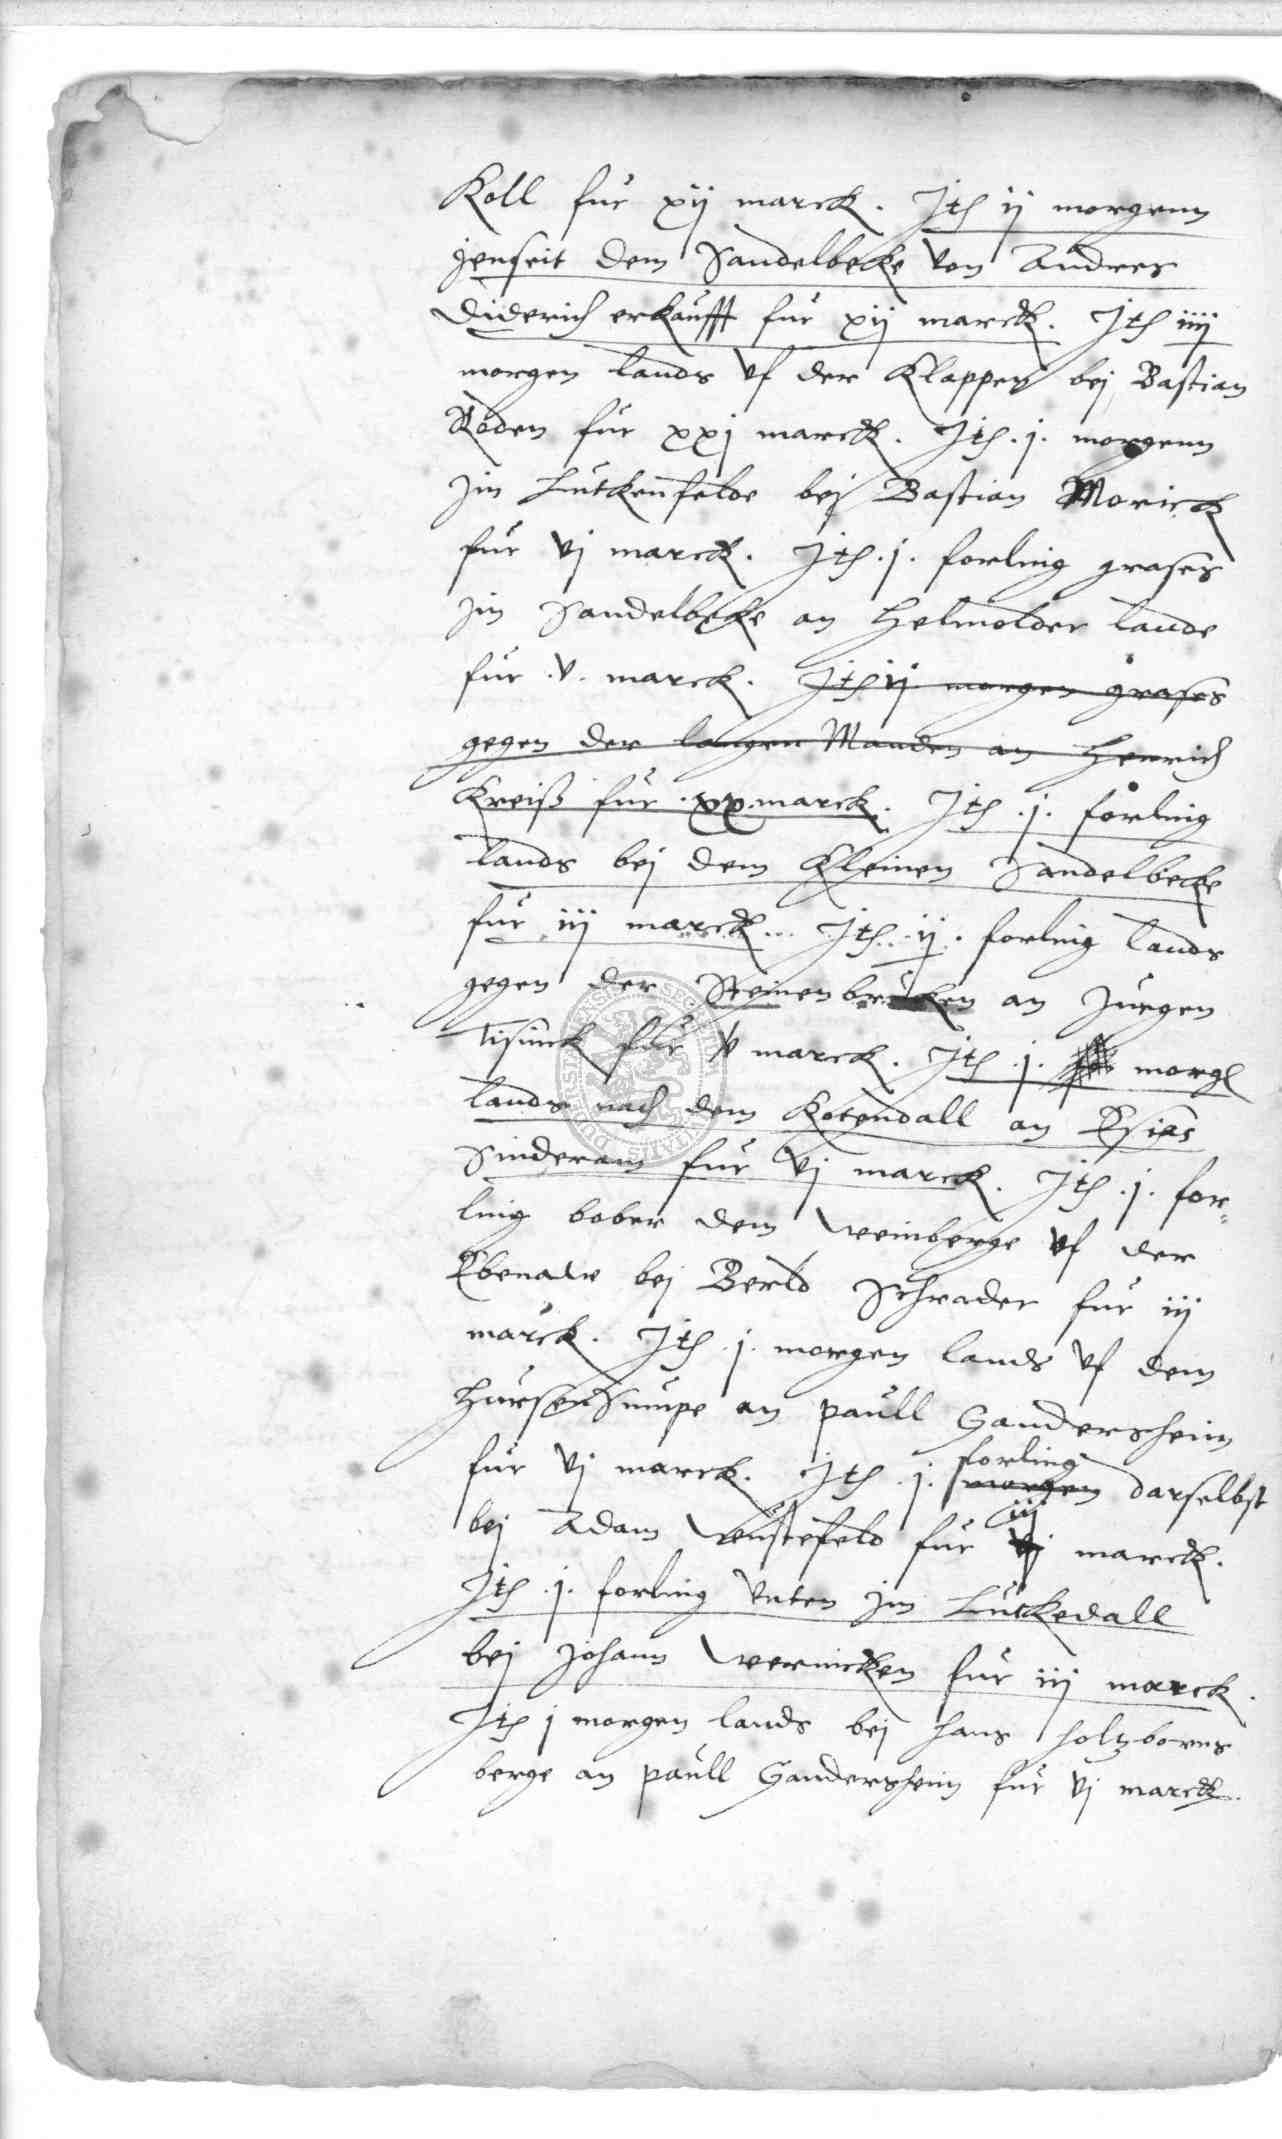 Koll fur xij marck. Jtē ij morgenn
jenseit dem Sandelbecke von Andres
Diderich erkaufft fur xij marck. Jtē iiij
morgen lands vf der Klappen bej Bastian
Roden fur xxj marck. Jtē .j. morgenn
jm Lutkenfelde bej Bastian Morick
fur vj marck. Jtē .j. forling grases
jm Sandelbeke an Helmolder lande
fur .v. marck. Jtē ij morgen grases
gegen der langen Wanden an Henrich
Kreiß fur .xx. marck. Jtē .j. forling
lands bej dem Kleinen Sandelbecke
fur iij marck. Jtē .ij. forling lands
gegen der Steinenbrucken an Jurgen
fur v marck. Jtē .j. morgē
lands nach dem Kotendall an Esias
Sinderam fur vj marck. Jtē .j. for-
ling bober dem weinberge vf der
Ebenaw bej Berld Schrader fur iij
marck. Jtē .j. morgen lands vf dem
an paull Gandersheim
fur vj marck. Jtē .j. forling morgen darselbst
bej Adam Wustefeld fur iij vj marck.
Jtē .j. forling vnten jm Lutkedall
bej Johann wernicken fur iij marck.
Jtē j morgen lands bej hans holtzborns
berge an paull Gandersheim fur vj marck.